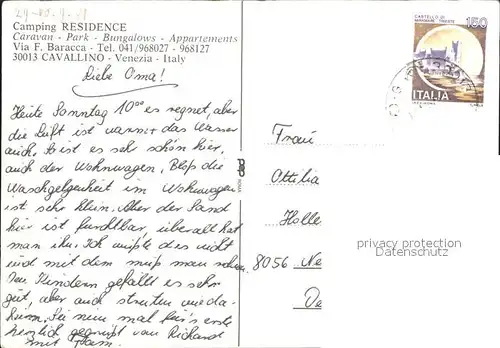 Camping RESIDENCE
Caravan - Park - Bungalows - Appartements
Via F. Baracca - Tel. 041/968027 - 968127
30013 CAVALLINO - Venezia - Italy
Liebe Oma!
Heute Sonntag 10⁰⁰ es regnet, aber
die Luft ist warm + das Wasser
auch. So ist es sehr schön hier,
auch der Wohnwagen. Bloß die
Waschgelgenheit im Wohnwagen
ist sehr klein. Aber der Sand
hier ist furchtbar, überall hat
man ihn. Ich wußte dies nicht
und mit dem muß man
Den Kindern gefällt es sehr
gut, aber auch streiten wie da-
heim. Sei nun mal für's erste
herzlich gegrüßt von Richard
mit Fam.
CASTELLO DI
MIRAMARE - TRIESTE
150
ITALIA
Frau
Ottilia
Holle
8056 Ne
De
privacy protection
Datenschutz